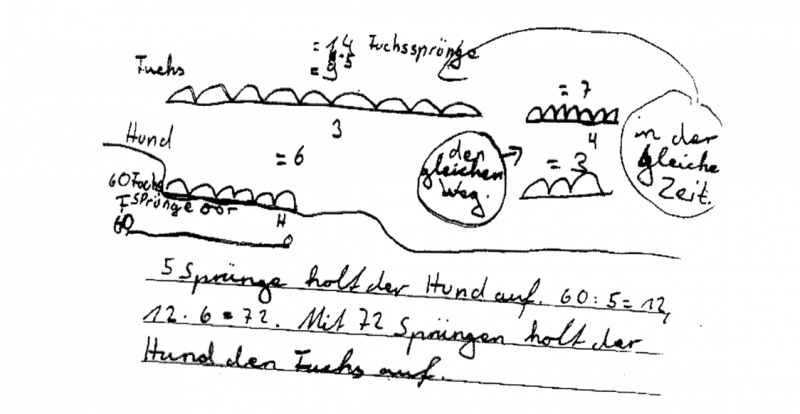 = 14 Fuchssprünge
= 9·5
Fuchs
3
= 7
4
in der
gleiche
Zeit.
Hund
= 6
den
gleichen
Weg.
= 3
60 Fuchs
sprünge vor
H
60
0
5 Sprünge holt der Hund auf. 60 : 5 = 12,
12 · 6 = 72. Mit 72 Sprüngen holt der
Hund den Fuchs auf.